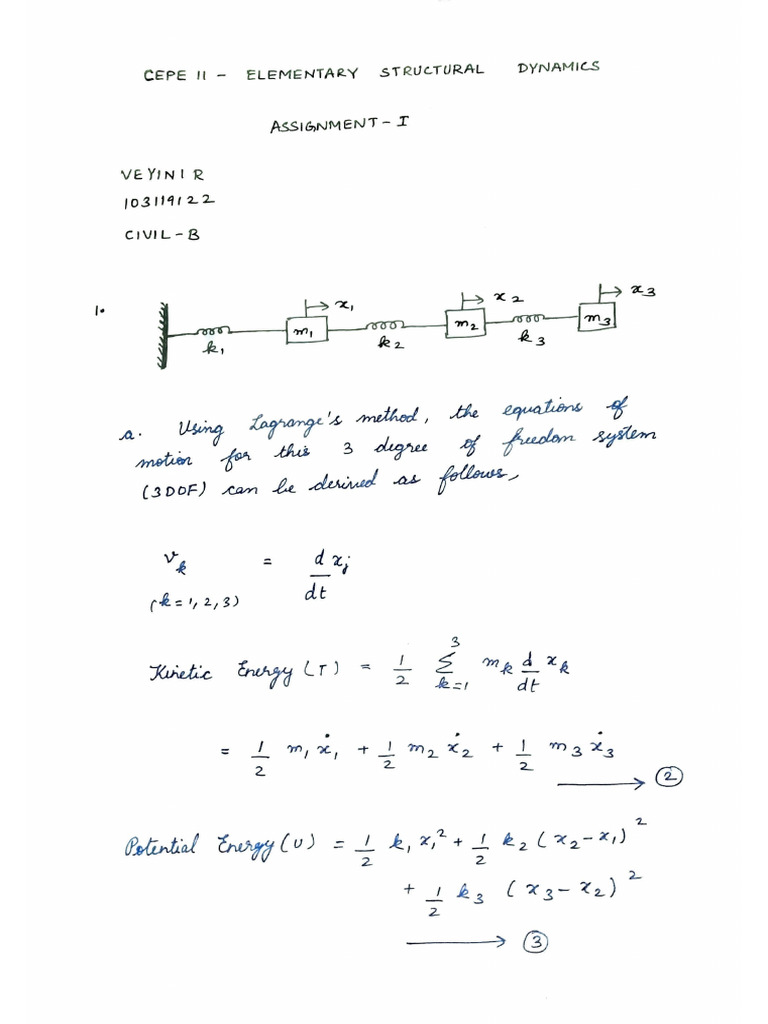 CEPE 11 - ELEMENTARY STRUCTURAL DYNAMICS
ASSIGNMENT - I
VEYINI R
103119122
CIVIL - B
1.
x₁ x₂ x₃
m₁ m₂ m₃
k₁ k₂ k₃
a. Using Lagrange's method, the equations of
motion for this 3 degree of freedom system
(3DOF) can be derived as follows,
v_k = d/dt x_j
(k = 1, 2, 3)
Kinetic Energy (T) = 1/2 Σ_{k=1}^{3} m_k d/dt x_k
= 1/2 m₁ ẋ₁ + 1/2 m₂ ẋ₂ + 1/2 m₃ ẋ₃
→ ②
Potential Energy (U) = 1/2 k₁ x₁² + 1/2 k₂ (x₂ - x₁)²
+ 1/2 k₃ (x₃ - x₂)²
→ ③